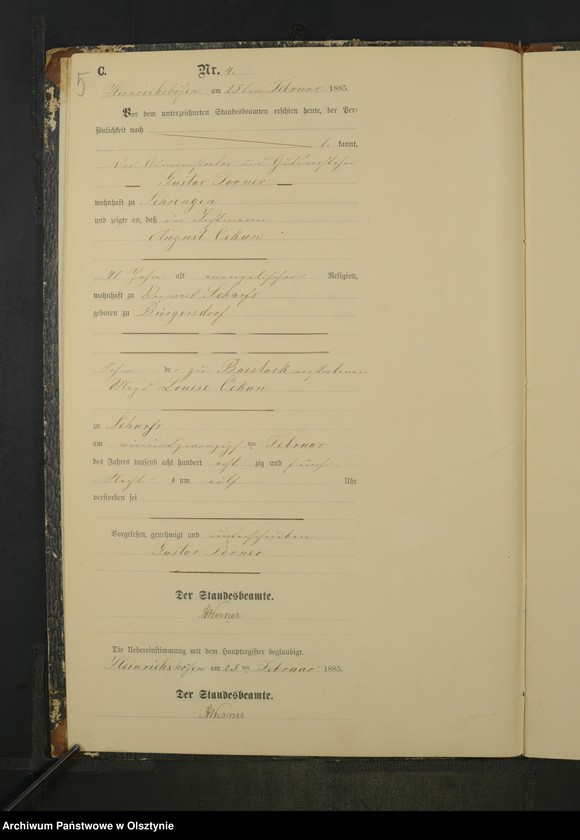 5
C. Nr. 4.
Heinrichshöfen am 25ten Februar 1885.
Vor dem unterzeichneten Standesbeamten erschien heute, der Per-
sönlichkeit nach
kannt,
der Administrator und Gutsvorsteher
Gustav
wohnhaft zu Sehrengen
und zeigte an, daß der
August Ockun
41 Jahre alt evangelischer Religion,
wohnhaft zu Vorwerk Scharfs
geboren zu Bürgersdorf
Sohn der zu Baeslack verstorbenen
Magd Louise Ockun
zu Scharfs
am vierundzwanzigsten Februar
des Jahres tausend acht hundert acht zig und fünf
Nachts um elf Uhr
verstorben sei
Vorgelesen, genehmigt und unterschrieben
Gustav
Der Standesbeamte.
AWerner
Die Uebereinstimmung mit dem Hauptregister beglaubigt.
Heinrichshöfen am 25ten Februar 1885.
Der Standesbeamte.
AWerner
Archiwum Państwowe w Olsztynie